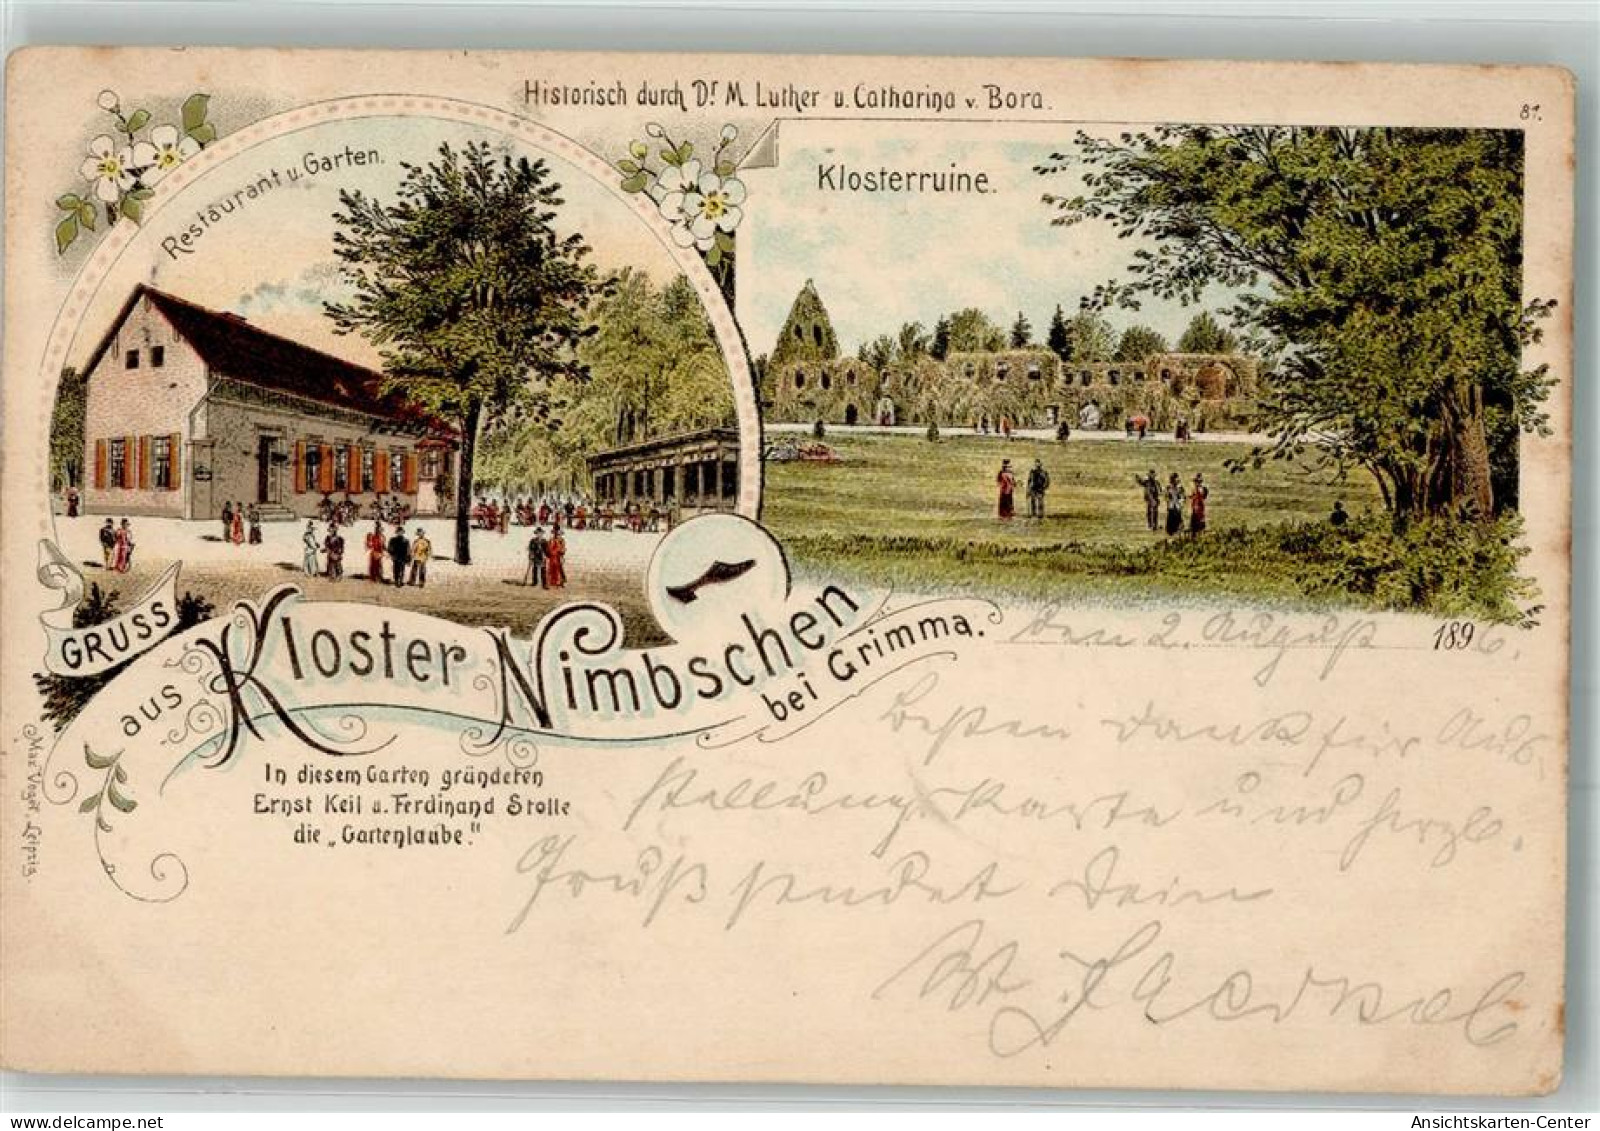 Historisch durch Dr. M. Luther u. Catharina v. Bora.
81.
Restaurant u. Garten.
Klosterruine.
GRUSS
aus Kloster Nimbschen
bei Grimma.
den 2. August 1896.
In diesem Garten gründeten
Ernst Keil u. Ferdinand Stolle
die „Gartenlaube."
Max Vogel, Leipzig.
Besten Dank für Aus-
stellungskarte und herzl.
Gruß sendet Dein
Ansichtskarten-Center